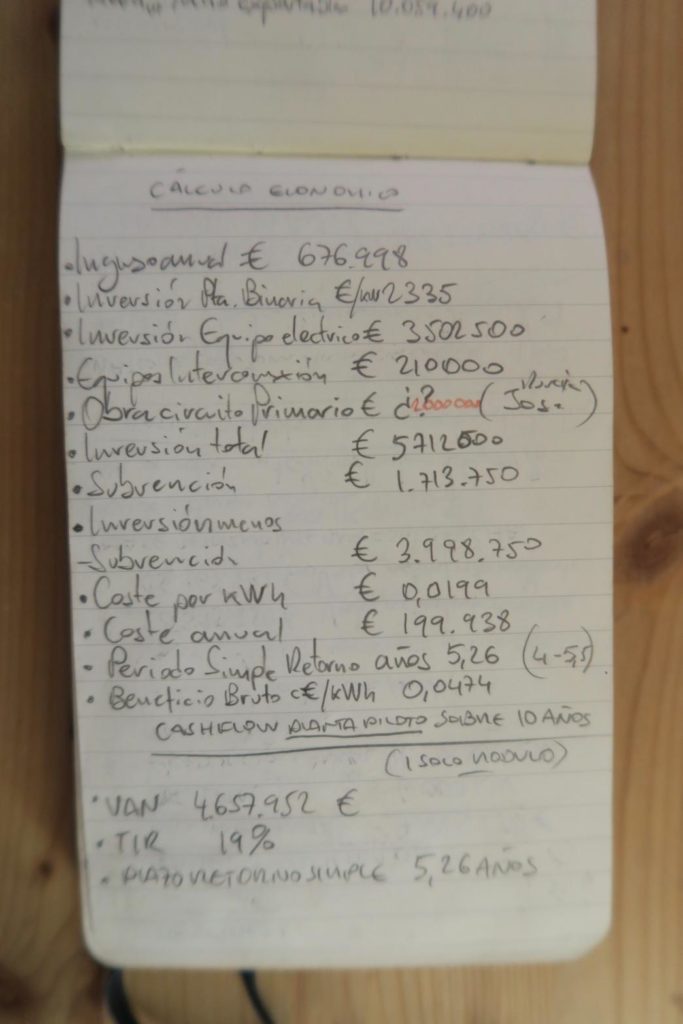 10.059.400
CÁLCULO ECONOMICO
• Ingreso anual € 676.998
• Inversión Pta. Binaria €/kW 2335
• Inversión Equipo eléctrico € 3502500
• Equipos Interconexión € 210000
• Obra circuito Primario € ¿? 2000000 (
• Inversión total € 5712500
• Subvención € 1.713.750
• Inversión menos
-Subvención € 3.998.750
• Coste por kWh € 0,0199
• Coste anual € 199.938
• Periodo Simple Retorno años 5,26 (4-5,5)
• Beneficio Bruto c€/kWh 0,0474
CASHFLOW PLANTA PILOTO SOBRE 10 AÑOS
(1 SOLO MODULO)
• VAN 4.657.952 €
• TIR 19%
• PLAZO RETORNO SIMPLE 5,26 AÑOS